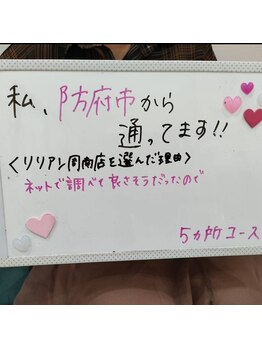 私、防府市から
通ってます!!
<リリアン周南店を選んだ理由>
ネットで調べて良さそうだったので
5ヵ所コース